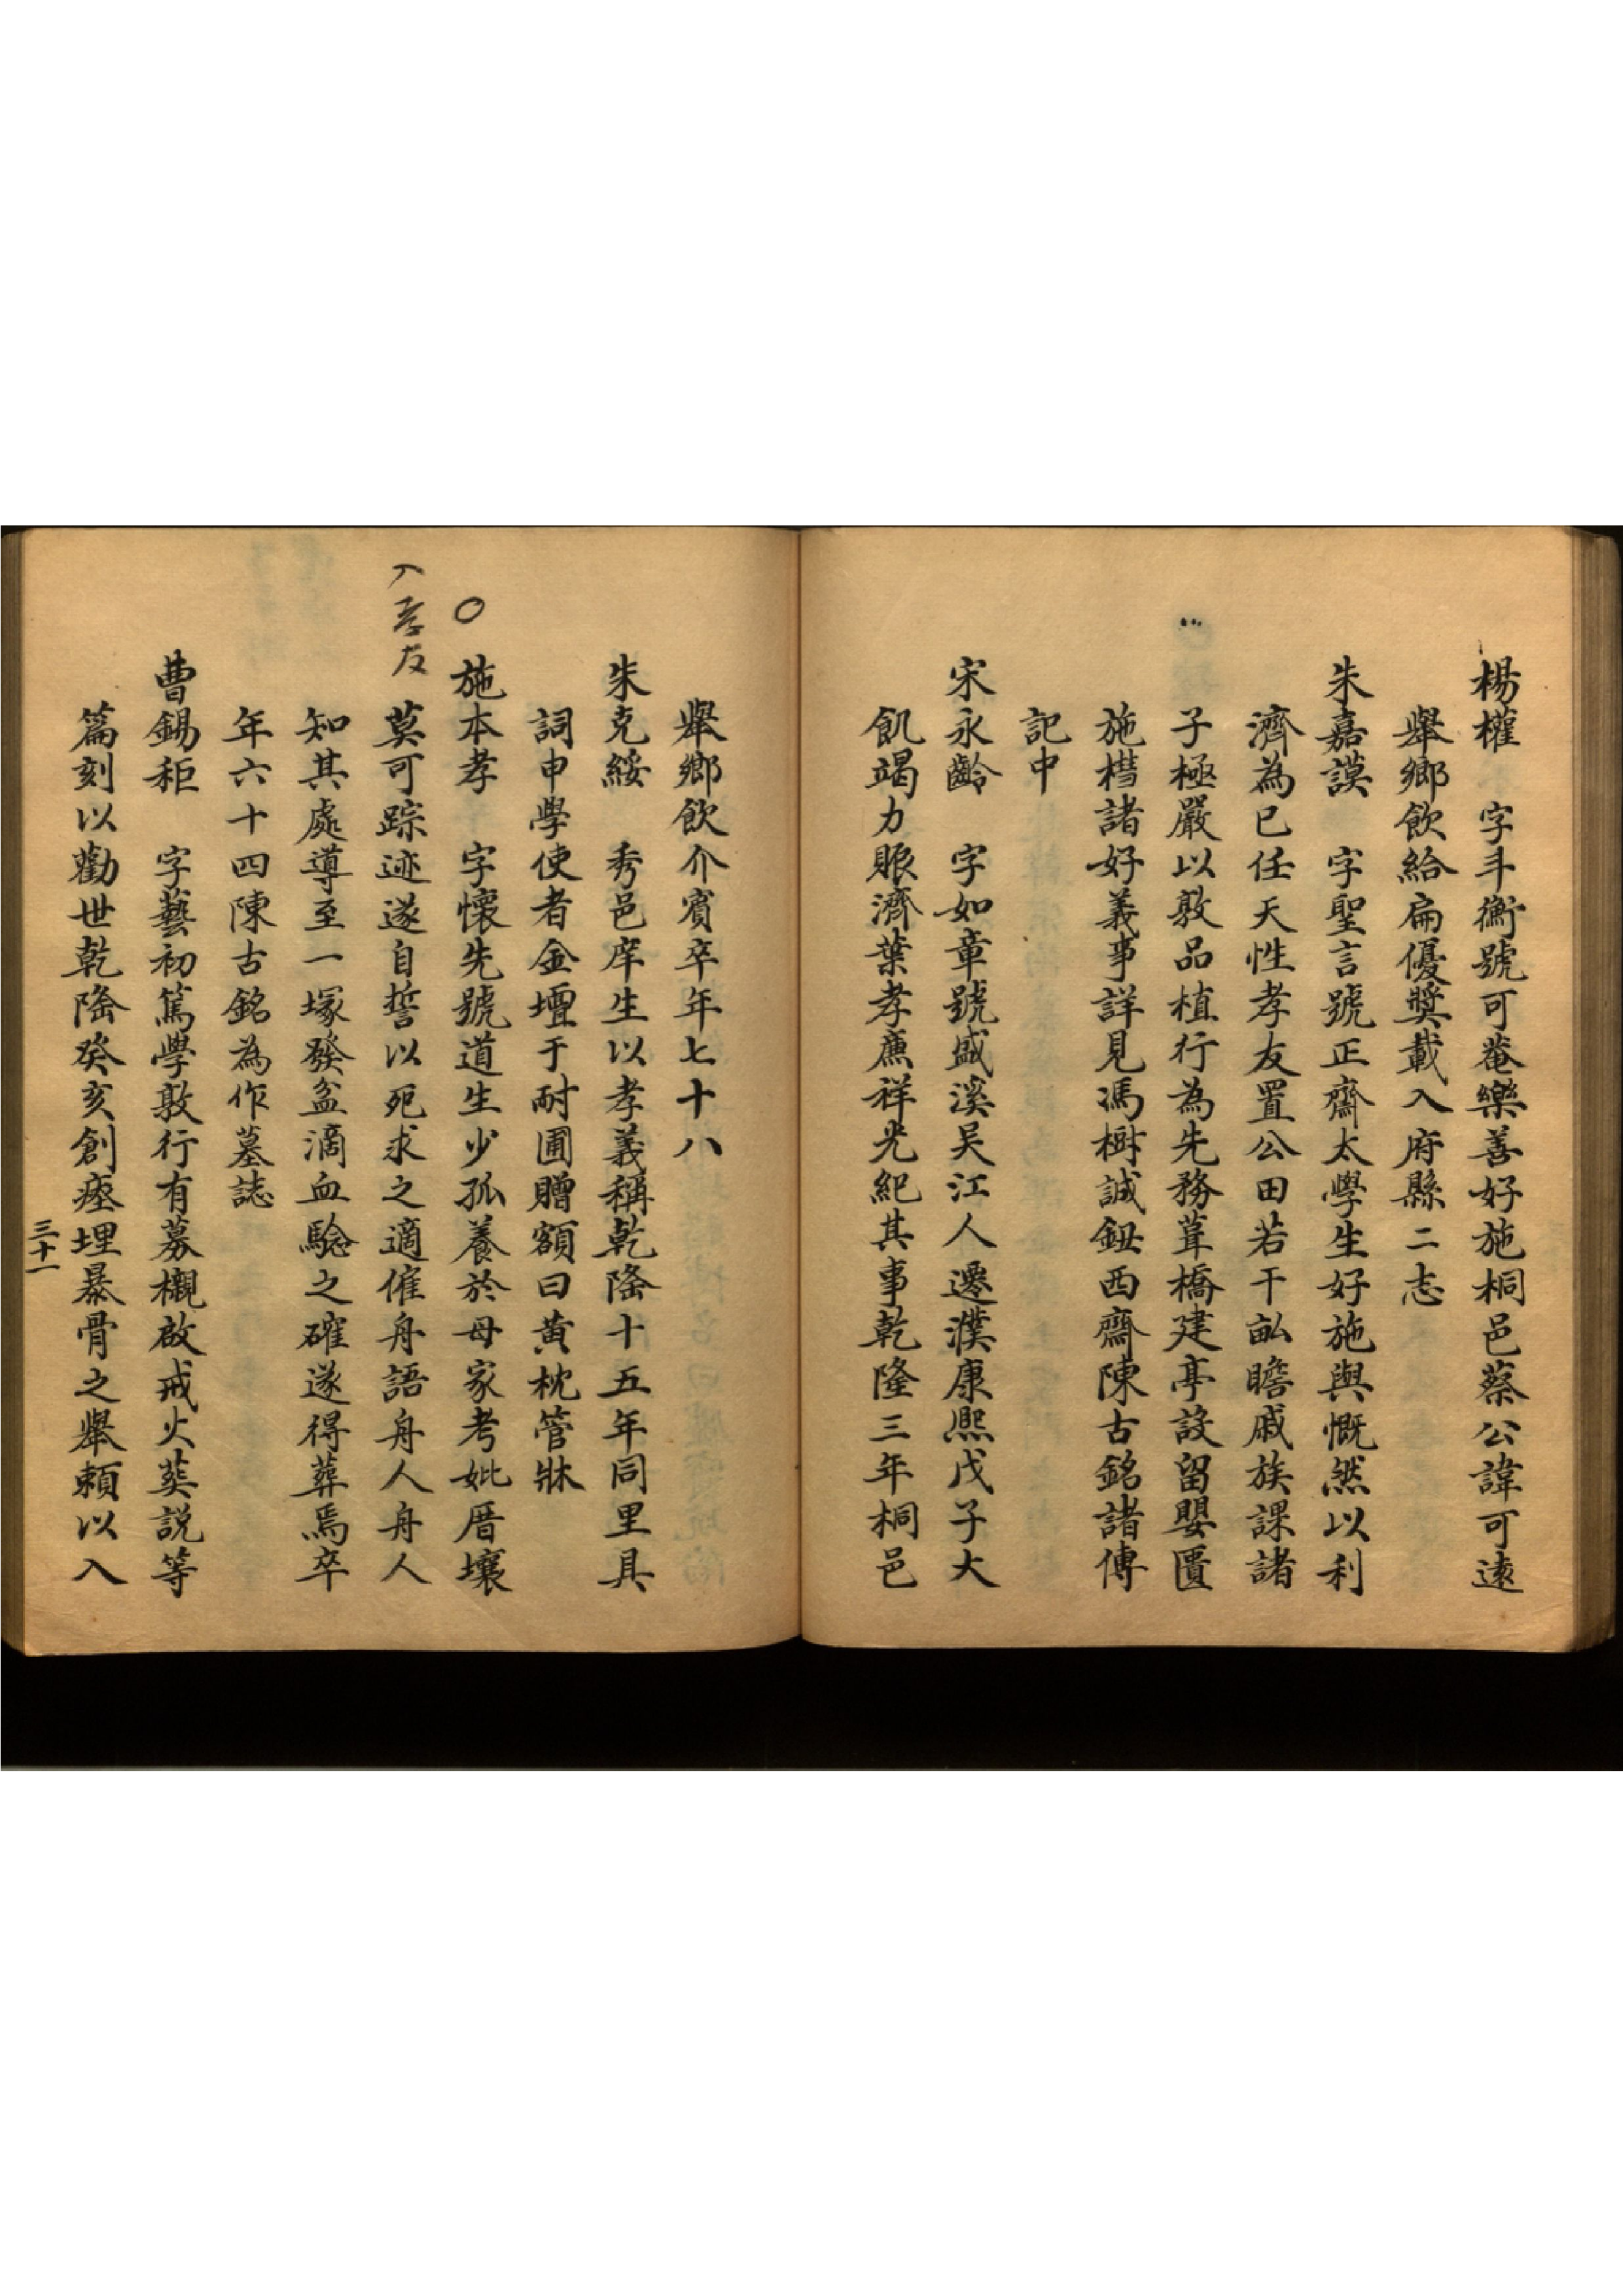 楊權　字斗衡號可菴樂善好施桐邑蔡公諱可遠
舉鄉飲給扁優奬載入府縣二志
朱嘉謨　字聖言號正齋太學生好施與慨然以利
濟為已任天性孝友置公田若干畝贍戚族課諸
子極嚴以敦品植行為先務葺橋建亭設留嬰匱
施槥諸好義事詳見馮樹誠鈕西齋陳古銘諸傳
記中
宋永齡　字如章號盛溪吴江人遷濮康熙戊子大
飢竭力賑濟葉孝廉祥光紀其事乾隆三年桐邑
舉鄉飲介賓卒年七十八
朱克綏　秀邑庠生以孝義稱乾隆十五年同里具
詞申學使者金壇于耐圃贈額曰黄枕管牀
施本孝　字懷先號道生少孤養於母家考妣厝壤
莫可踪迹遂自誓以死求之適催舟語舟人舟人
知其處導至一塚發盆滴血驗之確遂得葬焉卒
年六十四陳古銘為作墓誌
曹錫秬　字藝初篤學敦行有募櫬啟戒火葬説等
篇刻以勸世乾隆癸亥創瘞埋暴骨之舉賴以入
〇
入孝友
三十一